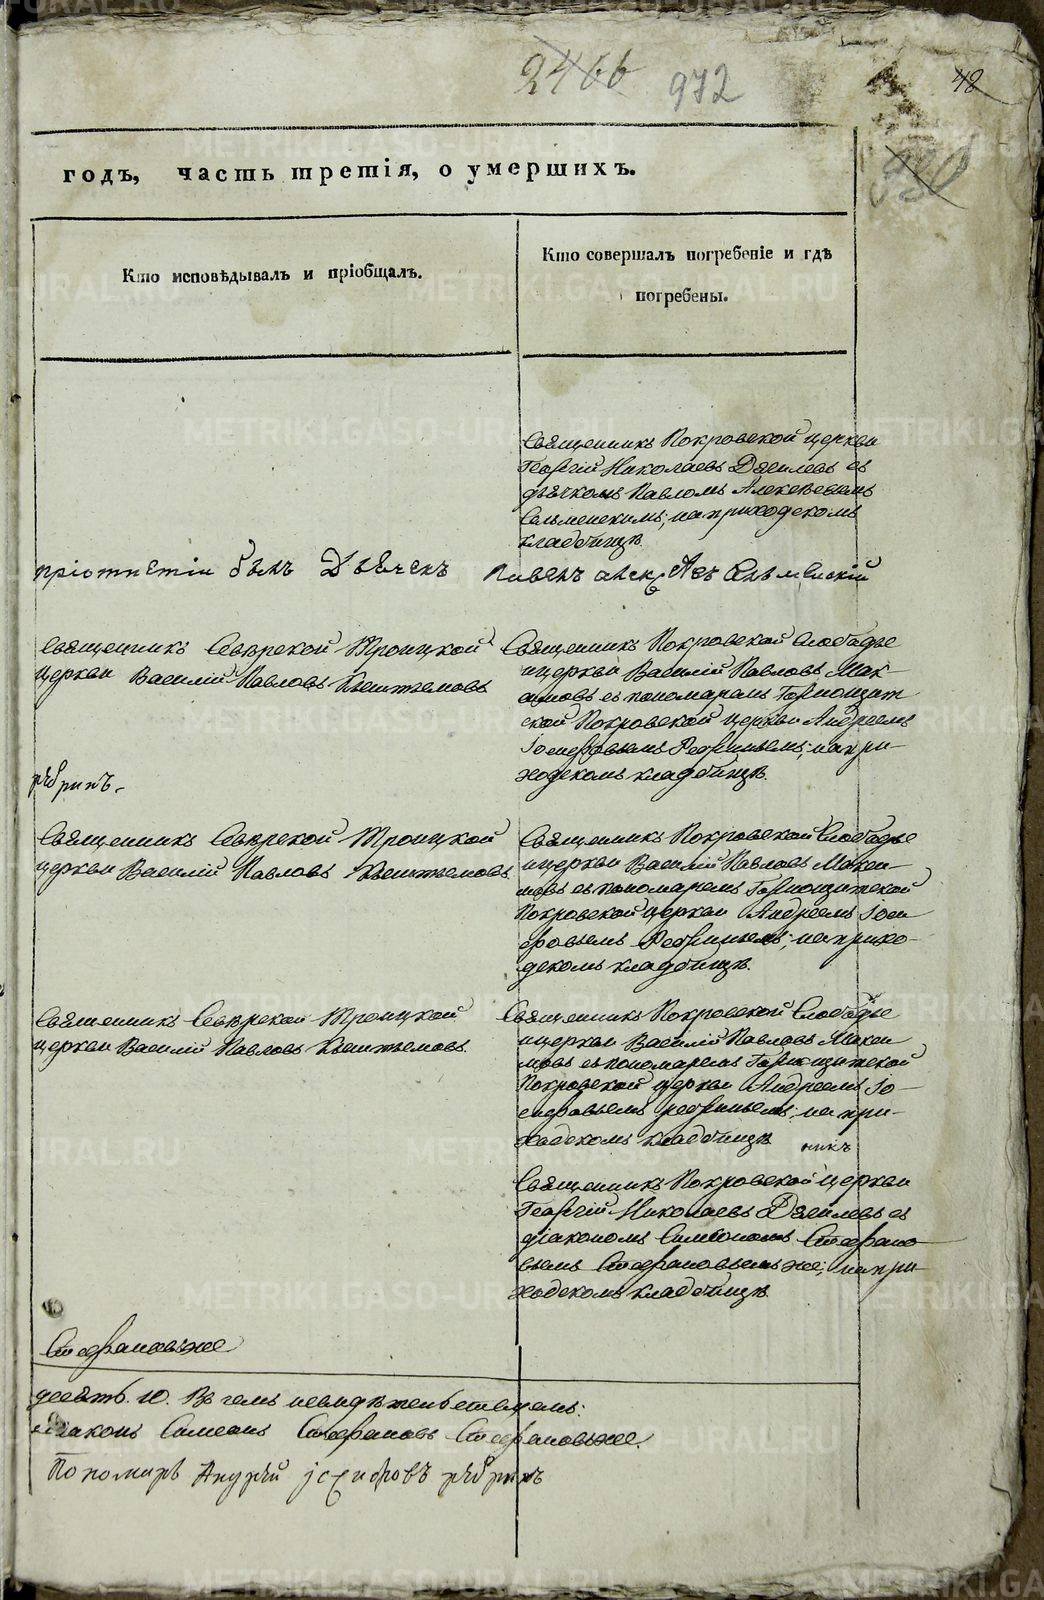 2466 972
48
930
годъ, часть третія, о умершихъ.
Кто исповѣдывалъ и пріобщалъ.
Кто совершалъ погребеніе и гдѣ
погребены.
Священникъ Покровской церкви
Георгій Николаевъ с
дьячкомъ Павломъ Алексѣевымъ
на приходскомъ
кладбищѣ.
былъ Дьячекъ Павелъ
Священникъ Сѣверской Троицкой
церкви Василій Павловъ
Священникъ Покровской Слободы
церкви Василій Павловъ Мак-
съ пономаремъ Горнощит
ской Покровской церкви Андреемъ
Іосифовымъ Ребринымъ, на при-
ходскомъ кладбищѣ.
рѣбринъ.
Священникъ Сѣверской Троицкой
церкви Василій Павловъ
Священникъ Покровской Слободы
церкви Василій Павловъ Макси
мовъ съ пономаремъ Горнощитской
Покровской церкви Андреемъ Іоси
фовымъ Ребринымъ, на прихо-
дскомъ кладбищѣ.
Священникъ Сѣверской Троицкой
церкви Василій Павловъ
Священникъ Покровской Слободы
церкви Василій Павловъ Макси
мовъ съ пономаремъ Горнощитской
Покровской церкви Андреемъ Іо-
сифовымъ ребринымъ, на при-
ходскомъ кладбищѣ
никъ
Священникъ Покровской церкви
Георгій Николаевъ съ
діакономъ Симеономъ Стефано
вымъ Стефановымъ же, на при-
ходскомъ кладбищѣ.
Стефановъ же
десять. 10. В томъ свидѣтельствуемъ:
діаконъ Симеонъ Стефановъ Стефановъ же.
Пономарь Андрей Іосифовъ рѣбринъ
METRIKI.GASO-URAL.RU